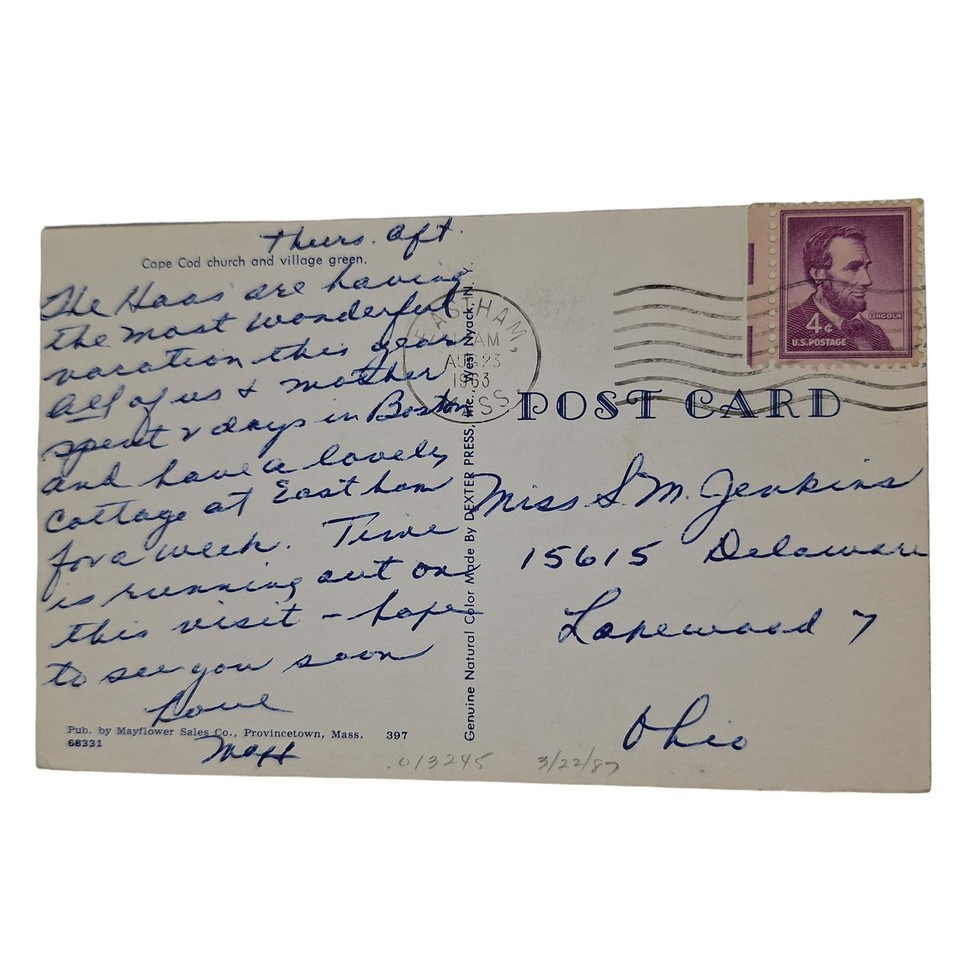 Thurs. Aft.
Cape Cod church and village green.
The Haas' are having
the most wonderful
vacation this year
All of us & mother
spent 2 days in Boston
and have a lovely
Cottage at Eastham
for a week. Time
is running out on
this visit – hope
to see you soon
Love
Pub. by Mayflower Sales Co., Provincetown, Mass. 397
68331
Genuine Natural Color Made By DEXTER PRESS, Inc., West Nyack, N. Y.
EASTHAM,
AM
AUG 23
1963
MASS
4¢
LINCOLN
U.S. POSTAGE
POST CARD
Miss S M. Jenkins
15615 Delaware
Lakewood 7
Ohio
.013245 3/22/87